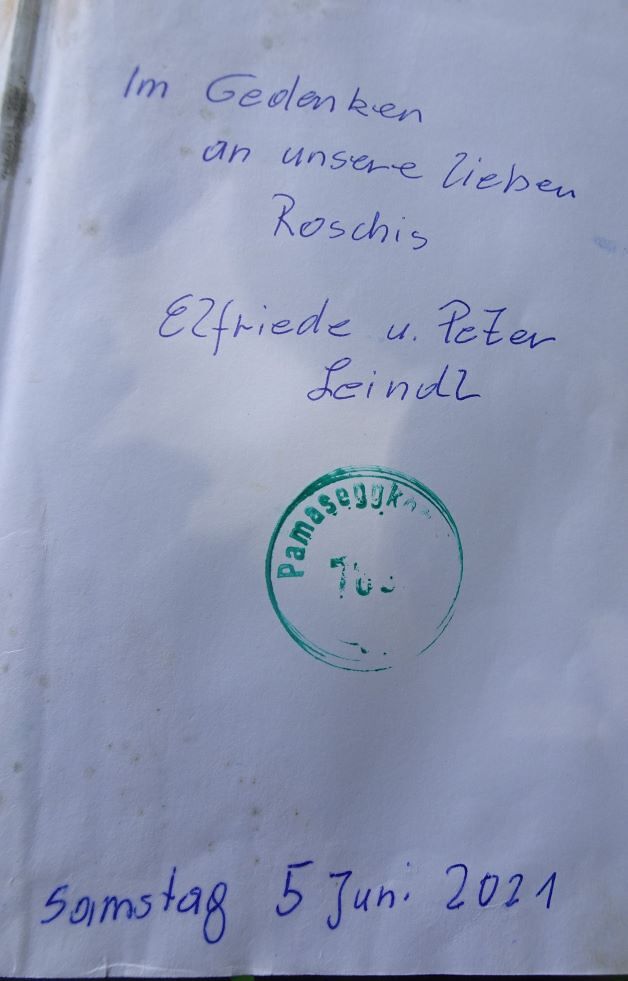 Im Gedenken
an unsere lieben
Roschis
Elfriede u. Peter
Leindl
Samstag 5 Juni 2021